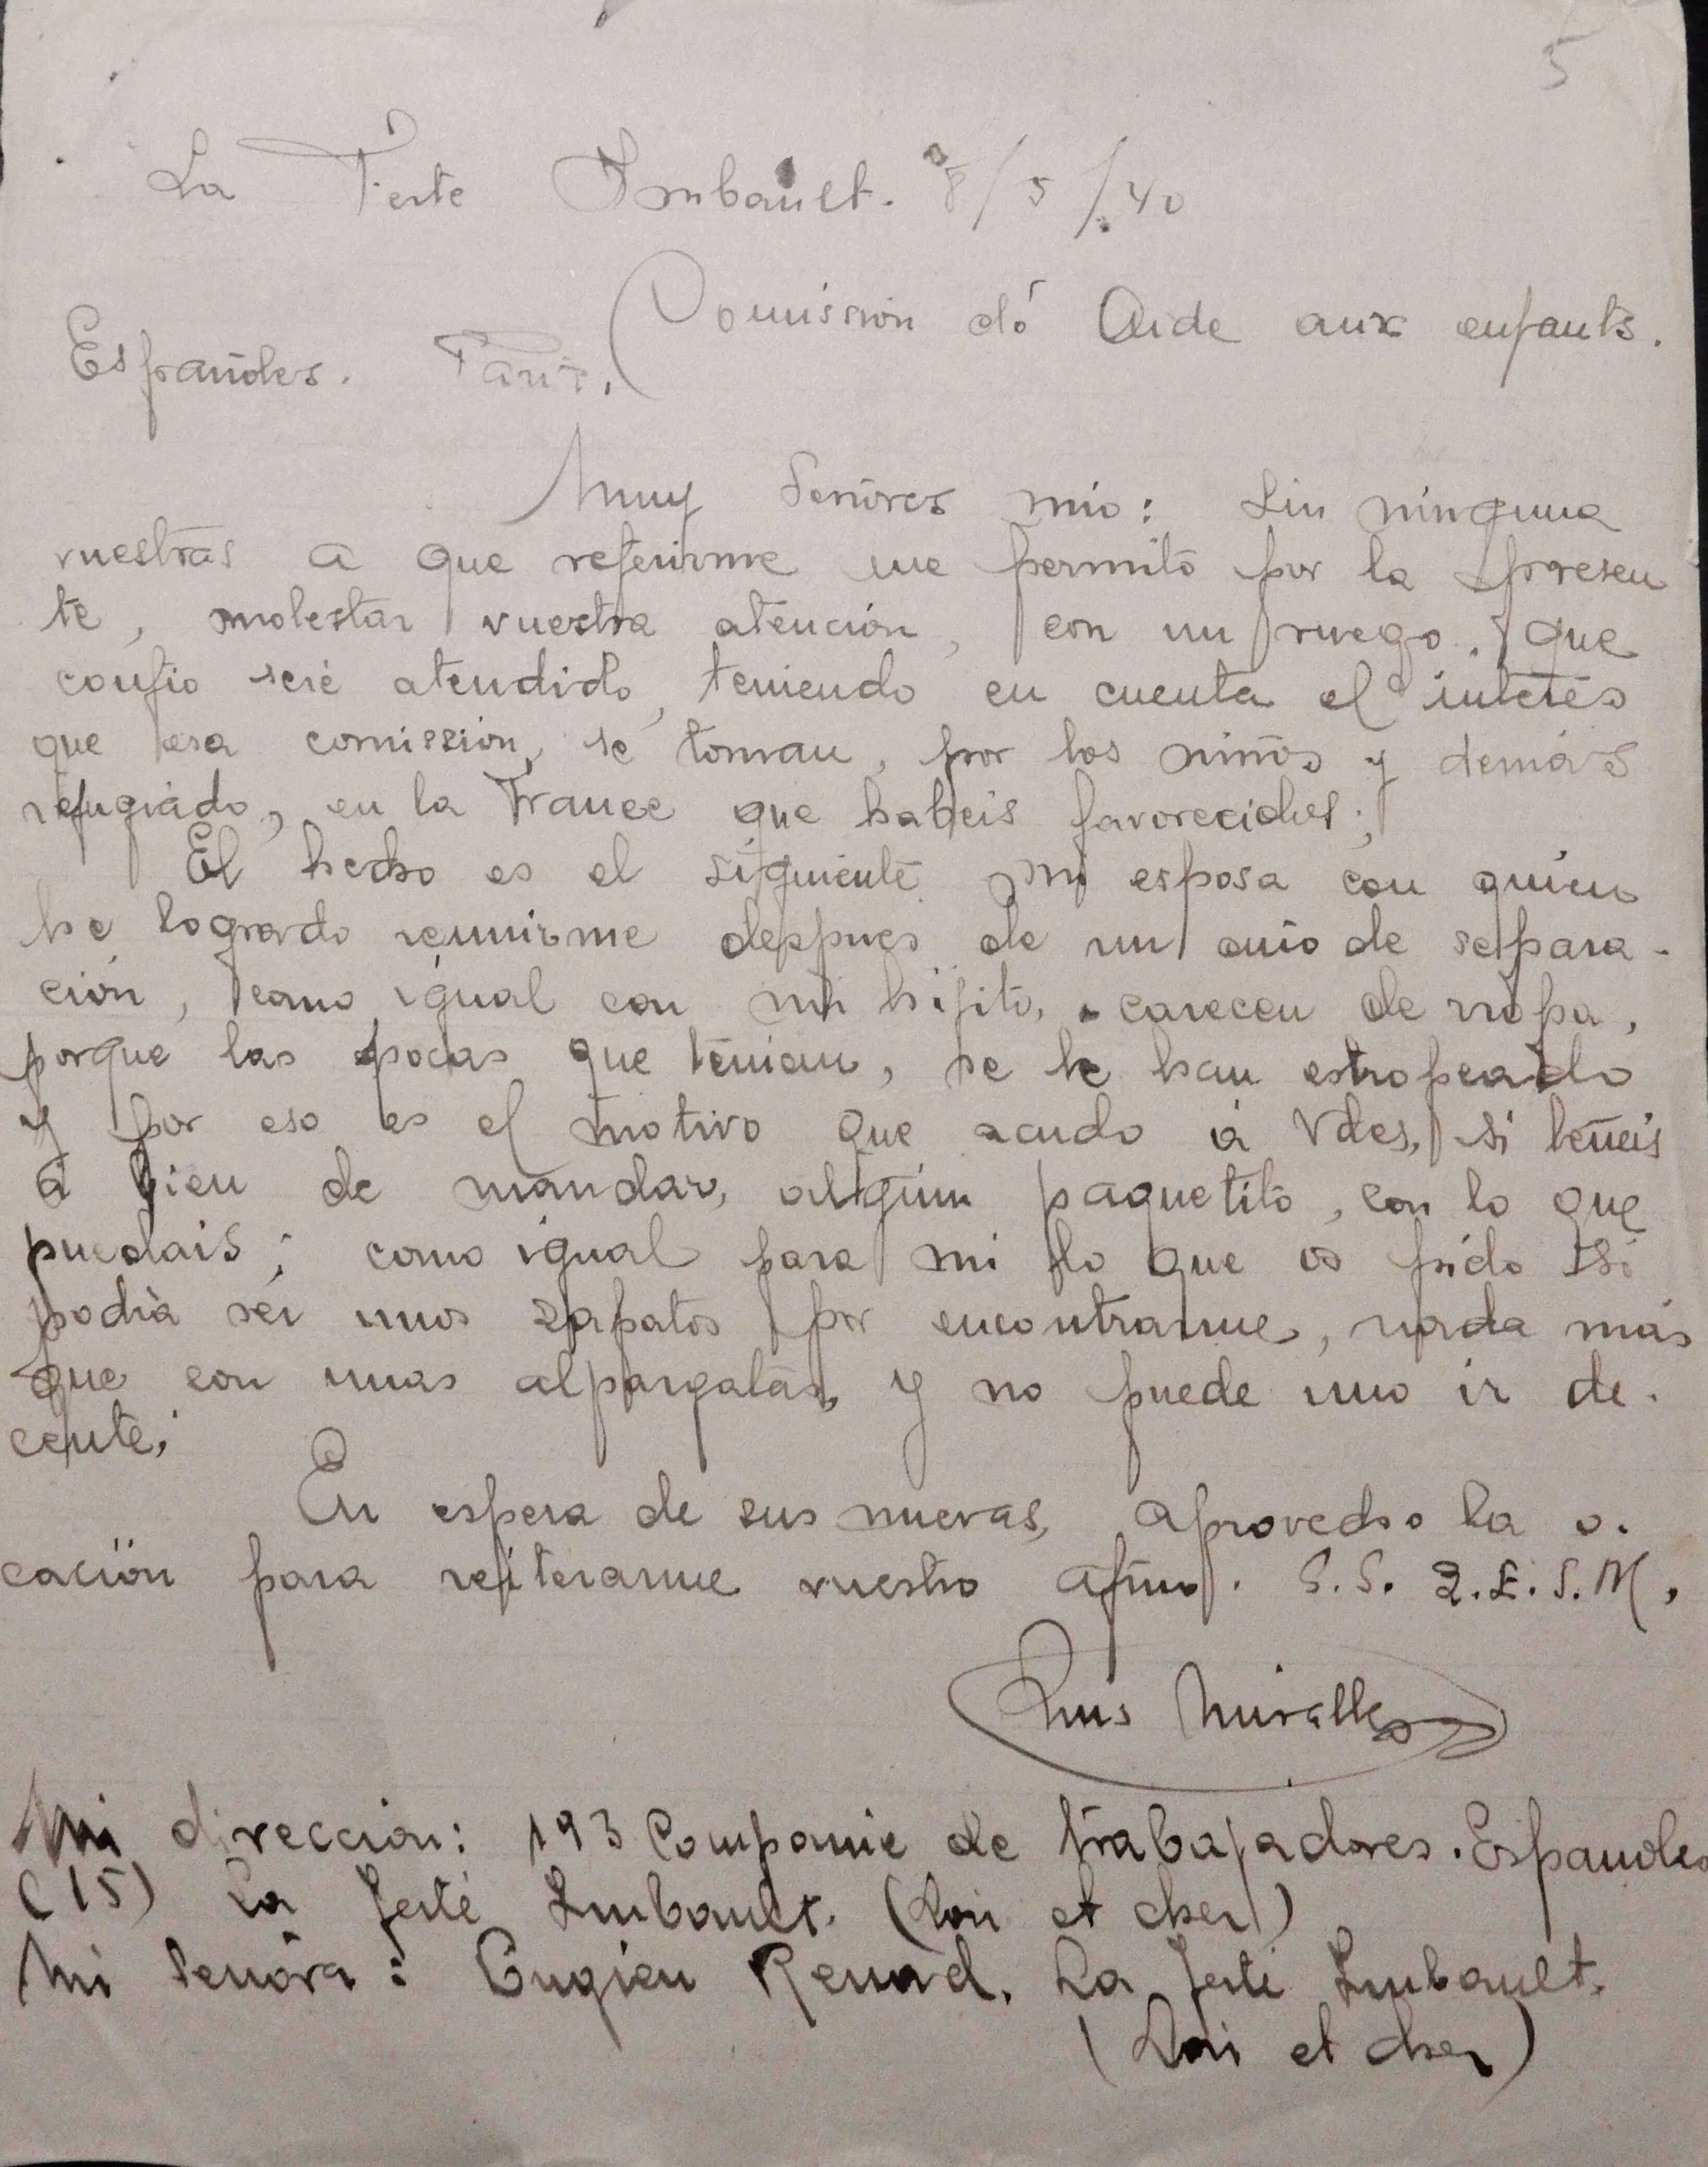 5
La Ferte Imbault. 8/5/40
Comission dó Aide aux enfants.
Españoles. Paris.
Muy Señores mio: Sin ninguna
vuestras a que referirme me permito por la presen
te, molestar vuestra atención, con un ruego, que
confio seré atendido, teniendo en cuenta el interés
que esa comission, se toman, por los niños y demás
refugiado, en la France que habeis favorecidos;
El hecho es el siguiente mi esposa con quien
he logrado reunirme deppues de un año de separa-
ción, como igual con mi hijito, carecen de ropa,
porque las pocas que tenian, se le han estropeado
y por eso es el motivo que acudo á Vdes, si teneis
á bien de mandar, algun paquetito, con lo que
puedais; como igual para mi lo que os pido si
podria ser unos zapatos por encontrarme, nada más
que con unas alpargatas, y no puede uno ir de-
cente;
En espera de sus nuevas, aprovecho la o-
cación para reiterarme vuestro afmo. S.S. Q.E.S.M,
Luis Miralles
Mi direccion: 193 Companie de trabajadores. Españoles
(15) La ferté Imbault. (Loir et cher)
Mi Señora: Eugien Renard. La ferté Imbault.
(Loir et cher)